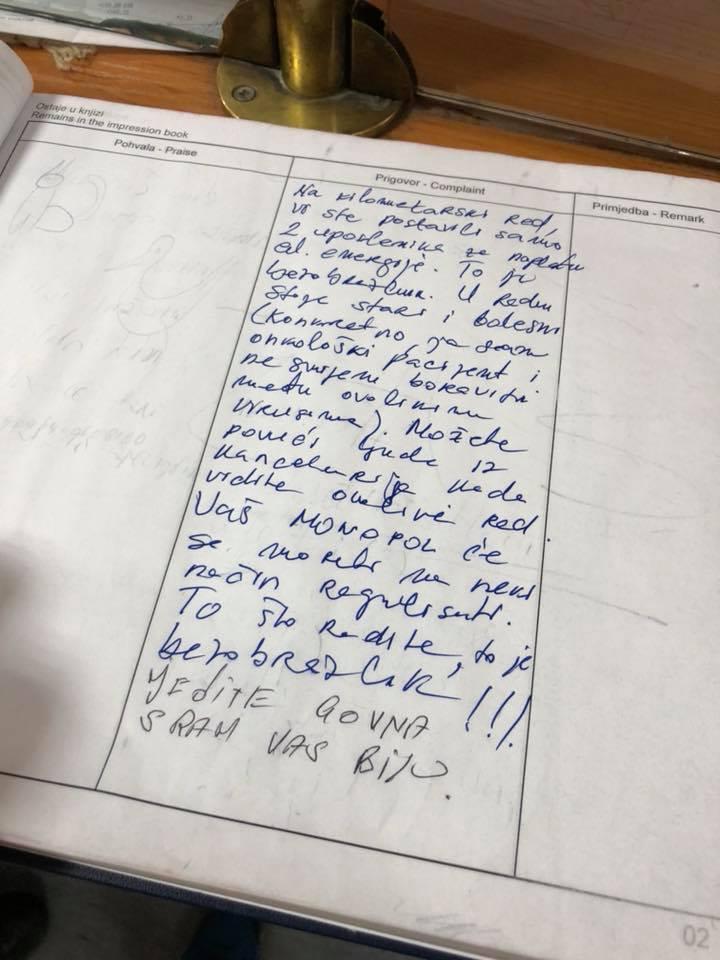 Ostaje u knjizi
Remains in the impression book
Pohvala - Praise
Prigovor - Complaint
Primjedba - Remark
Na kilometarski red,
vi ste postavili samo
2 uposlenika za naplatu
el. energije. To je
bezobrazluk. U redu
stoje stari i bolesni
(Konkretno, ja sam
onkološki pacijent i
ne smijem boraviti
među ovolikim
virusima). Možete
pomoći ljude iz
kancelarija kada
vidite ovakve red.
Vaš MONOPOL će
se morati na neki
način regulisati.
To što radite, to je
bezobrazluk!!!
JEDITE GOVNA
SRAM VAS BIJO.
02